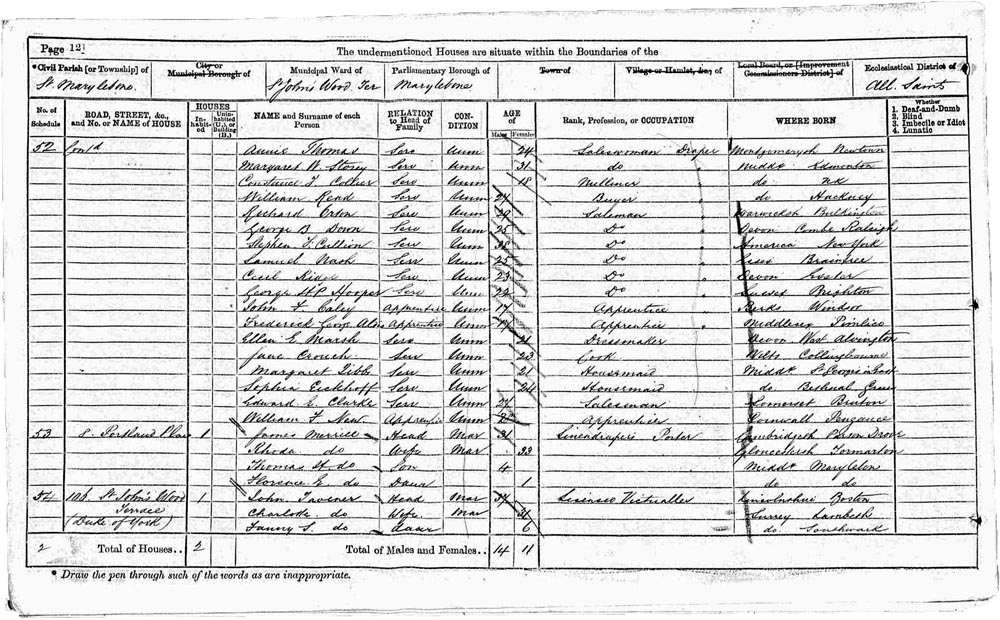 Page 12
The undermentioned Houses are situate within the Boundaries of the
*Civil Parish [or Township] of
St. Marylebone.
City or Municipal Borough of
Municipal Ward of
St John's Wood Ter
Parliamentary Borough of
Marylebone
Town of
Village or Hamlet, &c., of
Local Board, or [Improvement Commissioners District] of
Ecclesiastical District of
All Saints
No. of Schedule
ROAD, STREET, &c., and No. or NAME of HOUSE
HOUSES
Inhabited
Uninhabited (U.), or Building (B.)
NAME and Surname of each Person
RELATION to Head of Family
CONDITION
AGE of
Males
Females
Rank, Profession, or OCCUPATION
WHERE BORN
Whether
1. Deaf-and-Dumb
2. Blind
3. Imbecile or Idiot
4. Lunatic
52 Contd Annie Thomas Serv Unm 24 Saleswoman Draper Montgomerysh Newtown
Margaret W. Storey Serv Unm 31 do Middx Edmonton
Constance J. Collier Serv Unm 18 Milliner do
William Read Serv Unm 27 Buyer do Hackney
Richard Orton Serv Unm 29 Salesman Warwicksh Bulkington
George B. Down Serv Unm 25 Do Devon Combe Raleigh
Stephen J. Cullion Serv Unm Do America New York
Samuel Nash Serv Unm 25 Do Essex Braintree
Cecil Serv Unm 23 Do Devon Exeter
George Hooper Serv Unm 22 Do Sussex Brighton
John F. Caley Apprentice Unm 17 Apprentice Berks Windsor
Frederick Apprentice Unm 17 Apprentice Middlesex Pimlico
Ellen E. Marsh Serv Unm 21 Dressmaker Devon West Alvington
Jane Crouch Serv Unm 23 Cook Wilts Collingbourne
Margaret Tibbs Serv Unm 21 Housemaid Middx
Sophia Eickhoff Serv Unm 24 Housemaid do Bethnal Green
Edward E. Clarke Serv Unm 27 Salesman Somerset Bruton
William F. New Apprentice Unm Apprentice Cornwall Penzance
53 8. Portland Place 1 James Merrill Head Mar 31 Linendrapers Porter Cambridgesh
Rhoda do Wife Mar 33 Gloucestersh Tormarton
Thomas H. do Son 4 Middx Marylebon
Florence E. do Daur 1 do do
54 St John's Wood 1 John Tavener Head Mar 37 Licensed Victualler Lincolnshire Boston
Terrace Charlotte do Wife Mar 31 Surrey Lambeth
(Duke of York) Fanny S. do daur 6 do Southwark
2 Total of Houses.. 2 Total of Males and Females.. 14 11
* Draw the pen through such of the words as are inappropriate.